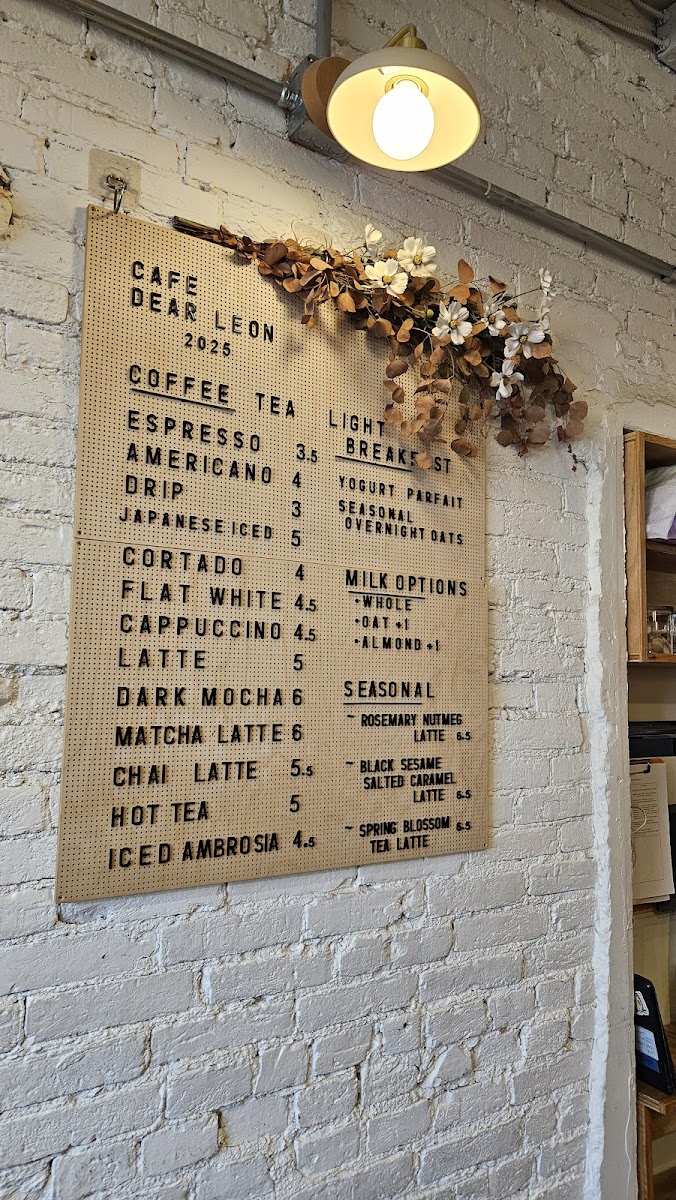 CAFE
DEAR LEON
2025
COFFEE TEA
ESPRESSO 3.5
AMERICANO 4
DRIP 3
JAPANESE ICED 5
CORTADO 4
FLAT WHITE 4.5
CAPPUCCINO 4.5
LATTE 5
DARK MOCHA 6
MATCHA LATTE 6
CHAI LATTE 5.5
HOT TEA 5
ICED AMBROSIA 4.5
LIGHT
BREAKFAST
YOGURT PARFAIT
SEASONAL
OVERNIGHT OATS
MILK OPTIONS
•WHOLE
•OAT +1
•ALMOND +1
SEASONAL
~ ROSEMARY NUTMEG
LATTE 6.5
~ BLACK SESAME
SALTED CARAMEL
LATTE 6.5
~ SPRING BLOSSOM 6.5
TEA LATTE